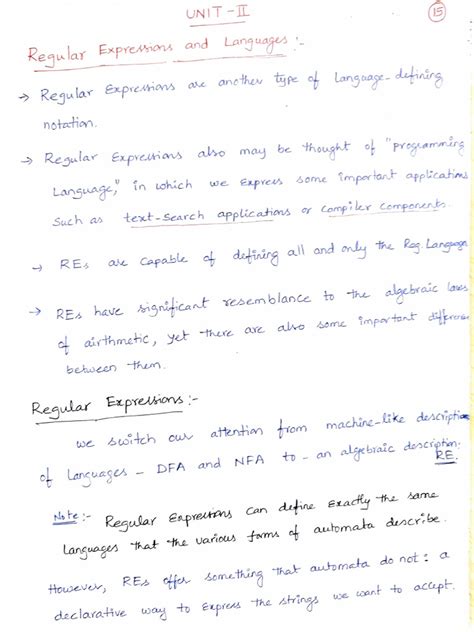 UNIT-II
15
Regular Expressions and Languages :-
→ Regular Expressions are another type of language-defining
notation.
→ Regular Expressions also may be thought of "programming
Language," in which we express some important applications
such as text-search applications or compiler components.
→ REs are capable of defining all and only the Reg. Language
→ REs have significant resemblance to the algebraic laws
of airthmetic, yet there are also some important differenc
between them.
Regular Expressions :-
we switch our attention from machine-like descriptio
of languages - DFA and NFA to - an algebraic description:
RE.
Note :- Regular Expressions can define Exactly the same
languages that the various forms of automata describe.
However, REs offer something that automata do not : a
declarative way to Express the strings we want to accept.